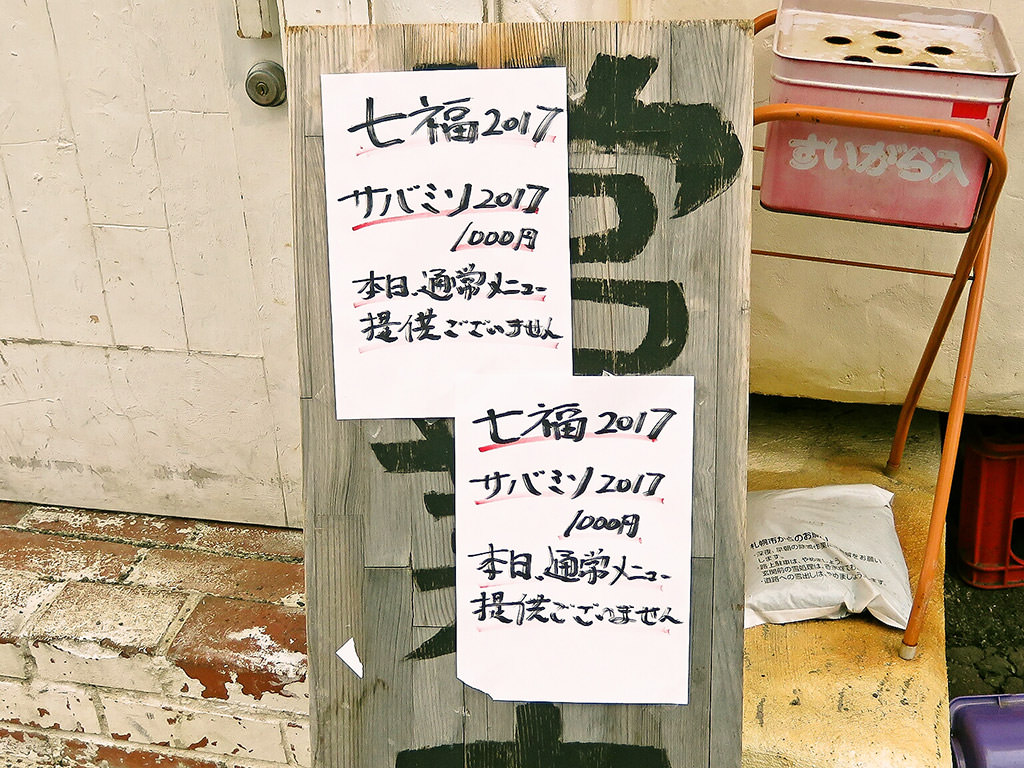 七福2017
サバミソ2017
1000円
本日、通常メニュー
提供ございません
七福2017
サバミソ2017
1000円
本日、通常メニュー
提供ございません
営業中
すいがら入
札幌市からのお願い